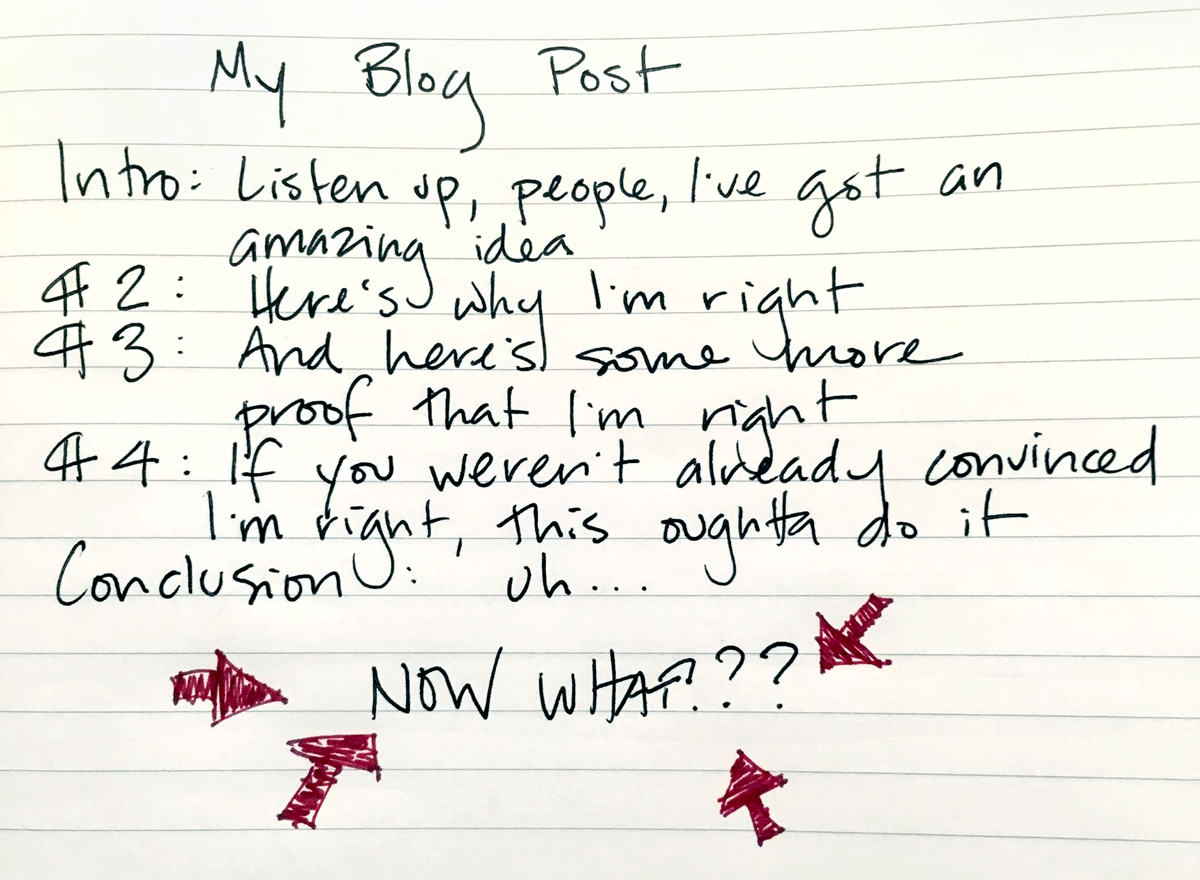 My Blog Post
Intro: Listen up, people, I've got an
amazing idea
#2: Here's why I'm right
#3: And here's some more
proof that I'm right
#4: If you weren't already convinced
I'm right, this oughtta do it
Conclusion: uh...
NOW WHAT???